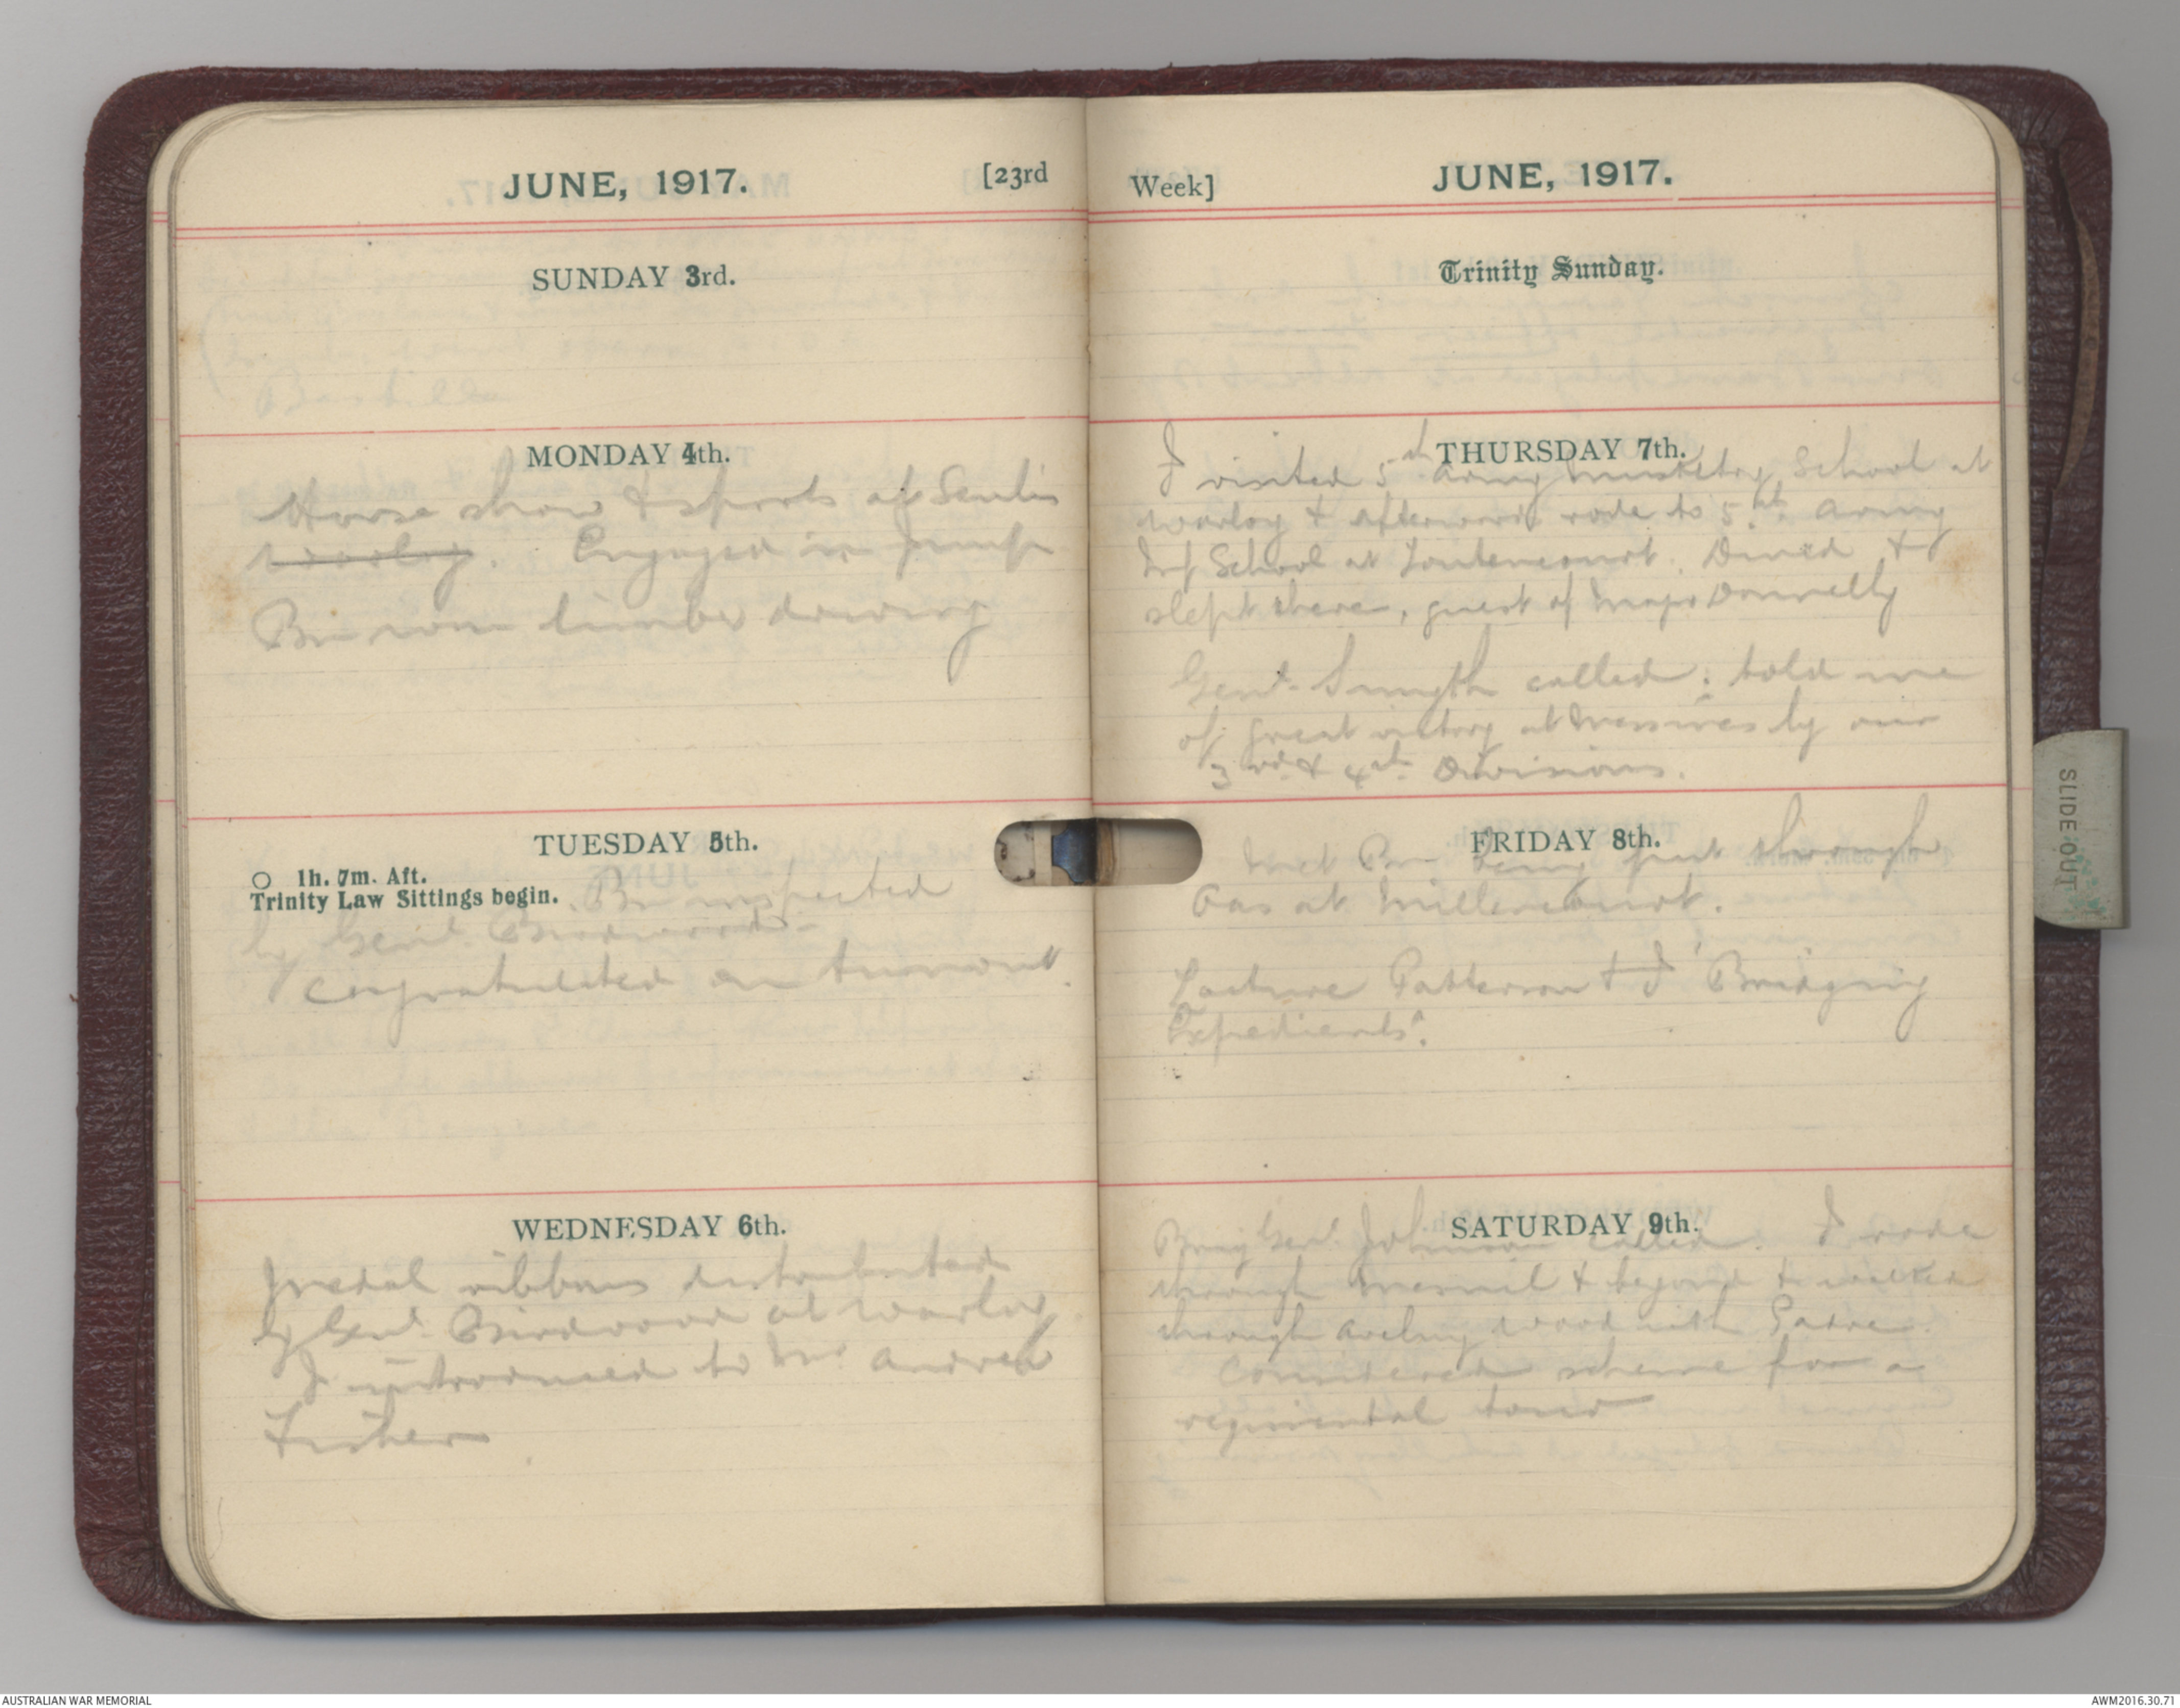 JUNE, 1917. [23rd
SUNDAY 3rd.
MONDAY 4th.
Horse show & sports at Senlis
Warloy. Engaged in jump
Bn won limber driving
TUESDAY 5th.
1h. 7m. Aft.
Trinity Law Sittings begin. Bn inspected
by Genl. Birdwood.
Congratulated on turnout.
WEDNESDAY 6th.
Medal ribbons distributed
by Genl. Birdwood at Warloy
I introduced to Mr. Andrew
Fisher
Week] JUNE, 1917.
Trinity Sunday.
THURSDAY 7th.
I visited 5th Army Musketry School at
Warloy & afterwards rode to 5th Army
Inf School at Toutencourt. Dined &
slept there, guest of Major Donnelly
Genl. Smyth called; told me
of great victory at Messines by our
3rd & 4th Divisions.
FRIDAY 8th.
Met Bn being put through
Gas at Millencourt.
Lecture Patterson & I "Bridging
Expedients".
SATURDAY 9th.
Brig Genl. Johnson called. I rode
through Mesnil & beyond & walked
through Aveluy Wood with Padre.
Considered scheme for a
regimental
SLIDE OUT
AUSTRALIAN WAR MEMORIAL
AWM2016.30.71